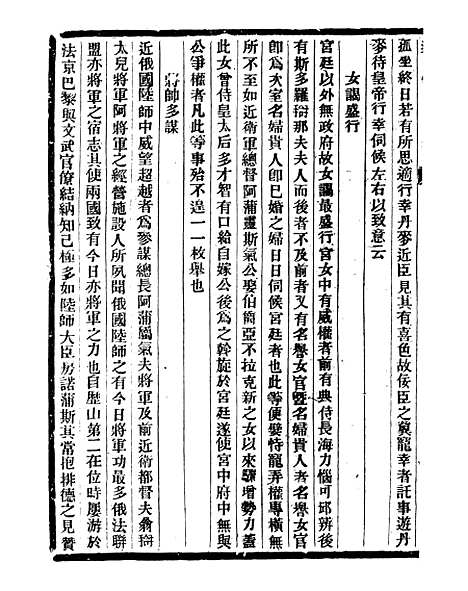 孤坐終日若有所思適行幸丹麥近臣見其有喜色故佞臣之冀寵幸者託事遊丹
麥待皇帝行幸伺候左右以致意云
女謁盛行
宮廷以外無政府故女謁最盛行宮女中有威權者前有典侍長海力惱可邱辨後
有斯多羅辯那夫夫人而後者不及前者又有名譽女官暨名婦貴人者名譽女官
卽爲次室名婦貴人卽已婚之婦日日伺候宮廷者也此等便嬖恃寵弄權專橫無
所不至如近衛軍總督阿蒲盧斯氣公娶伯簡亞不拉克新之女以來驟增勢力蓋
此女曾侍皇太后多才智有口給自嫁公後爲之斡旋於宮廷遂使宮中府中無與
公爭權者凡此等事殆不遑一一枚舉也
將帥多謀
近俄國陸師中威望超越者爲參謀總長阿蒲屬氣夫將軍及前近衛都督夫翁辯
太兒將軍阿將軍之經營施設人所夙聞俄國陸師之有今日將軍功最多俄法聯
盟亦將軍之宿志其使兩國致有今日亦將軍之力也自歷山第二在位時屢游於
法京巴黎與文武官僚結納知己極多如陸師大臣房諾蒲斯其常抱排德之見贊